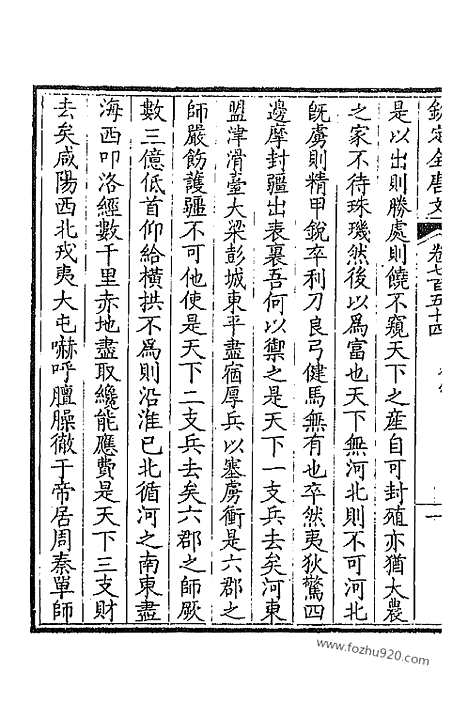 欽定全唐文 卷七百五十四
是以出則勝處則饒不窺天下之産自可封殖亦猶大農
之家不待珠璣然後以爲富也天下無河北則不可河北
既虜則精甲銳卒利刀良弓健馬無有也卒然夷狄驚四
邊摩封疆出表裏吾何以禦之是天下一支兵去矣河東
盟津滑臺大梁彭城東平盡宿厚兵以塞虜衝是六郡之
師嚴飭護疆不可他使是天下二支兵去矣六郡之師厥
數三億低首仰給橫拱不爲則沿淮已北循河之南東盡
海西叩洛經數千里赤地盡取纔能應費是天下三支財
去矣咸陽西北戎夷大屯嚇呼膻臊徹于帝居周秦單師
www.fozhu920.com